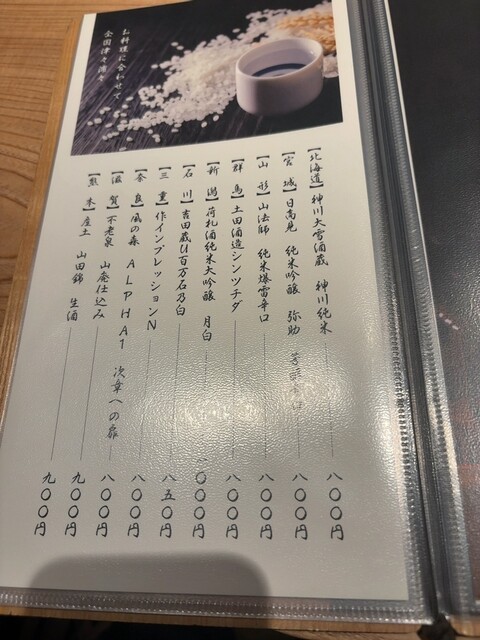 お料理に合わせて
全国津々浦々
【北海道】神川大雪酒蔵 神川純米 八〇〇円
【宮城】日高見 純米吟醸 弥助 八〇〇円
【山形】山法師 純米爆雷辛口 八〇〇円
【群馬】土田酒造シン ツチダ 八〇〇円
【新潟】荷札酒純米大吟醸 月白 一〇〇〇円
【石川】吉田蔵U百万石乃白 八五〇円
【三重】作インプレッションN 八〇〇円
【奈良】風の森 ALPHA1 次章への扉 八〇〇円
【滋賀】不老泉 山廃仕込み 九〇〇円
【熊本】産土 山田錦 生酒 九〇〇円